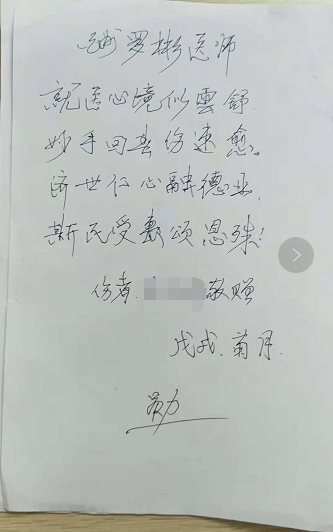 罗彬医师
就医心境似雲舒
妙手回春伤速愈。
济世仁心融德业,
斯民受惠颂恩殊!
伤者. 敬赠
戊戌.菊月.